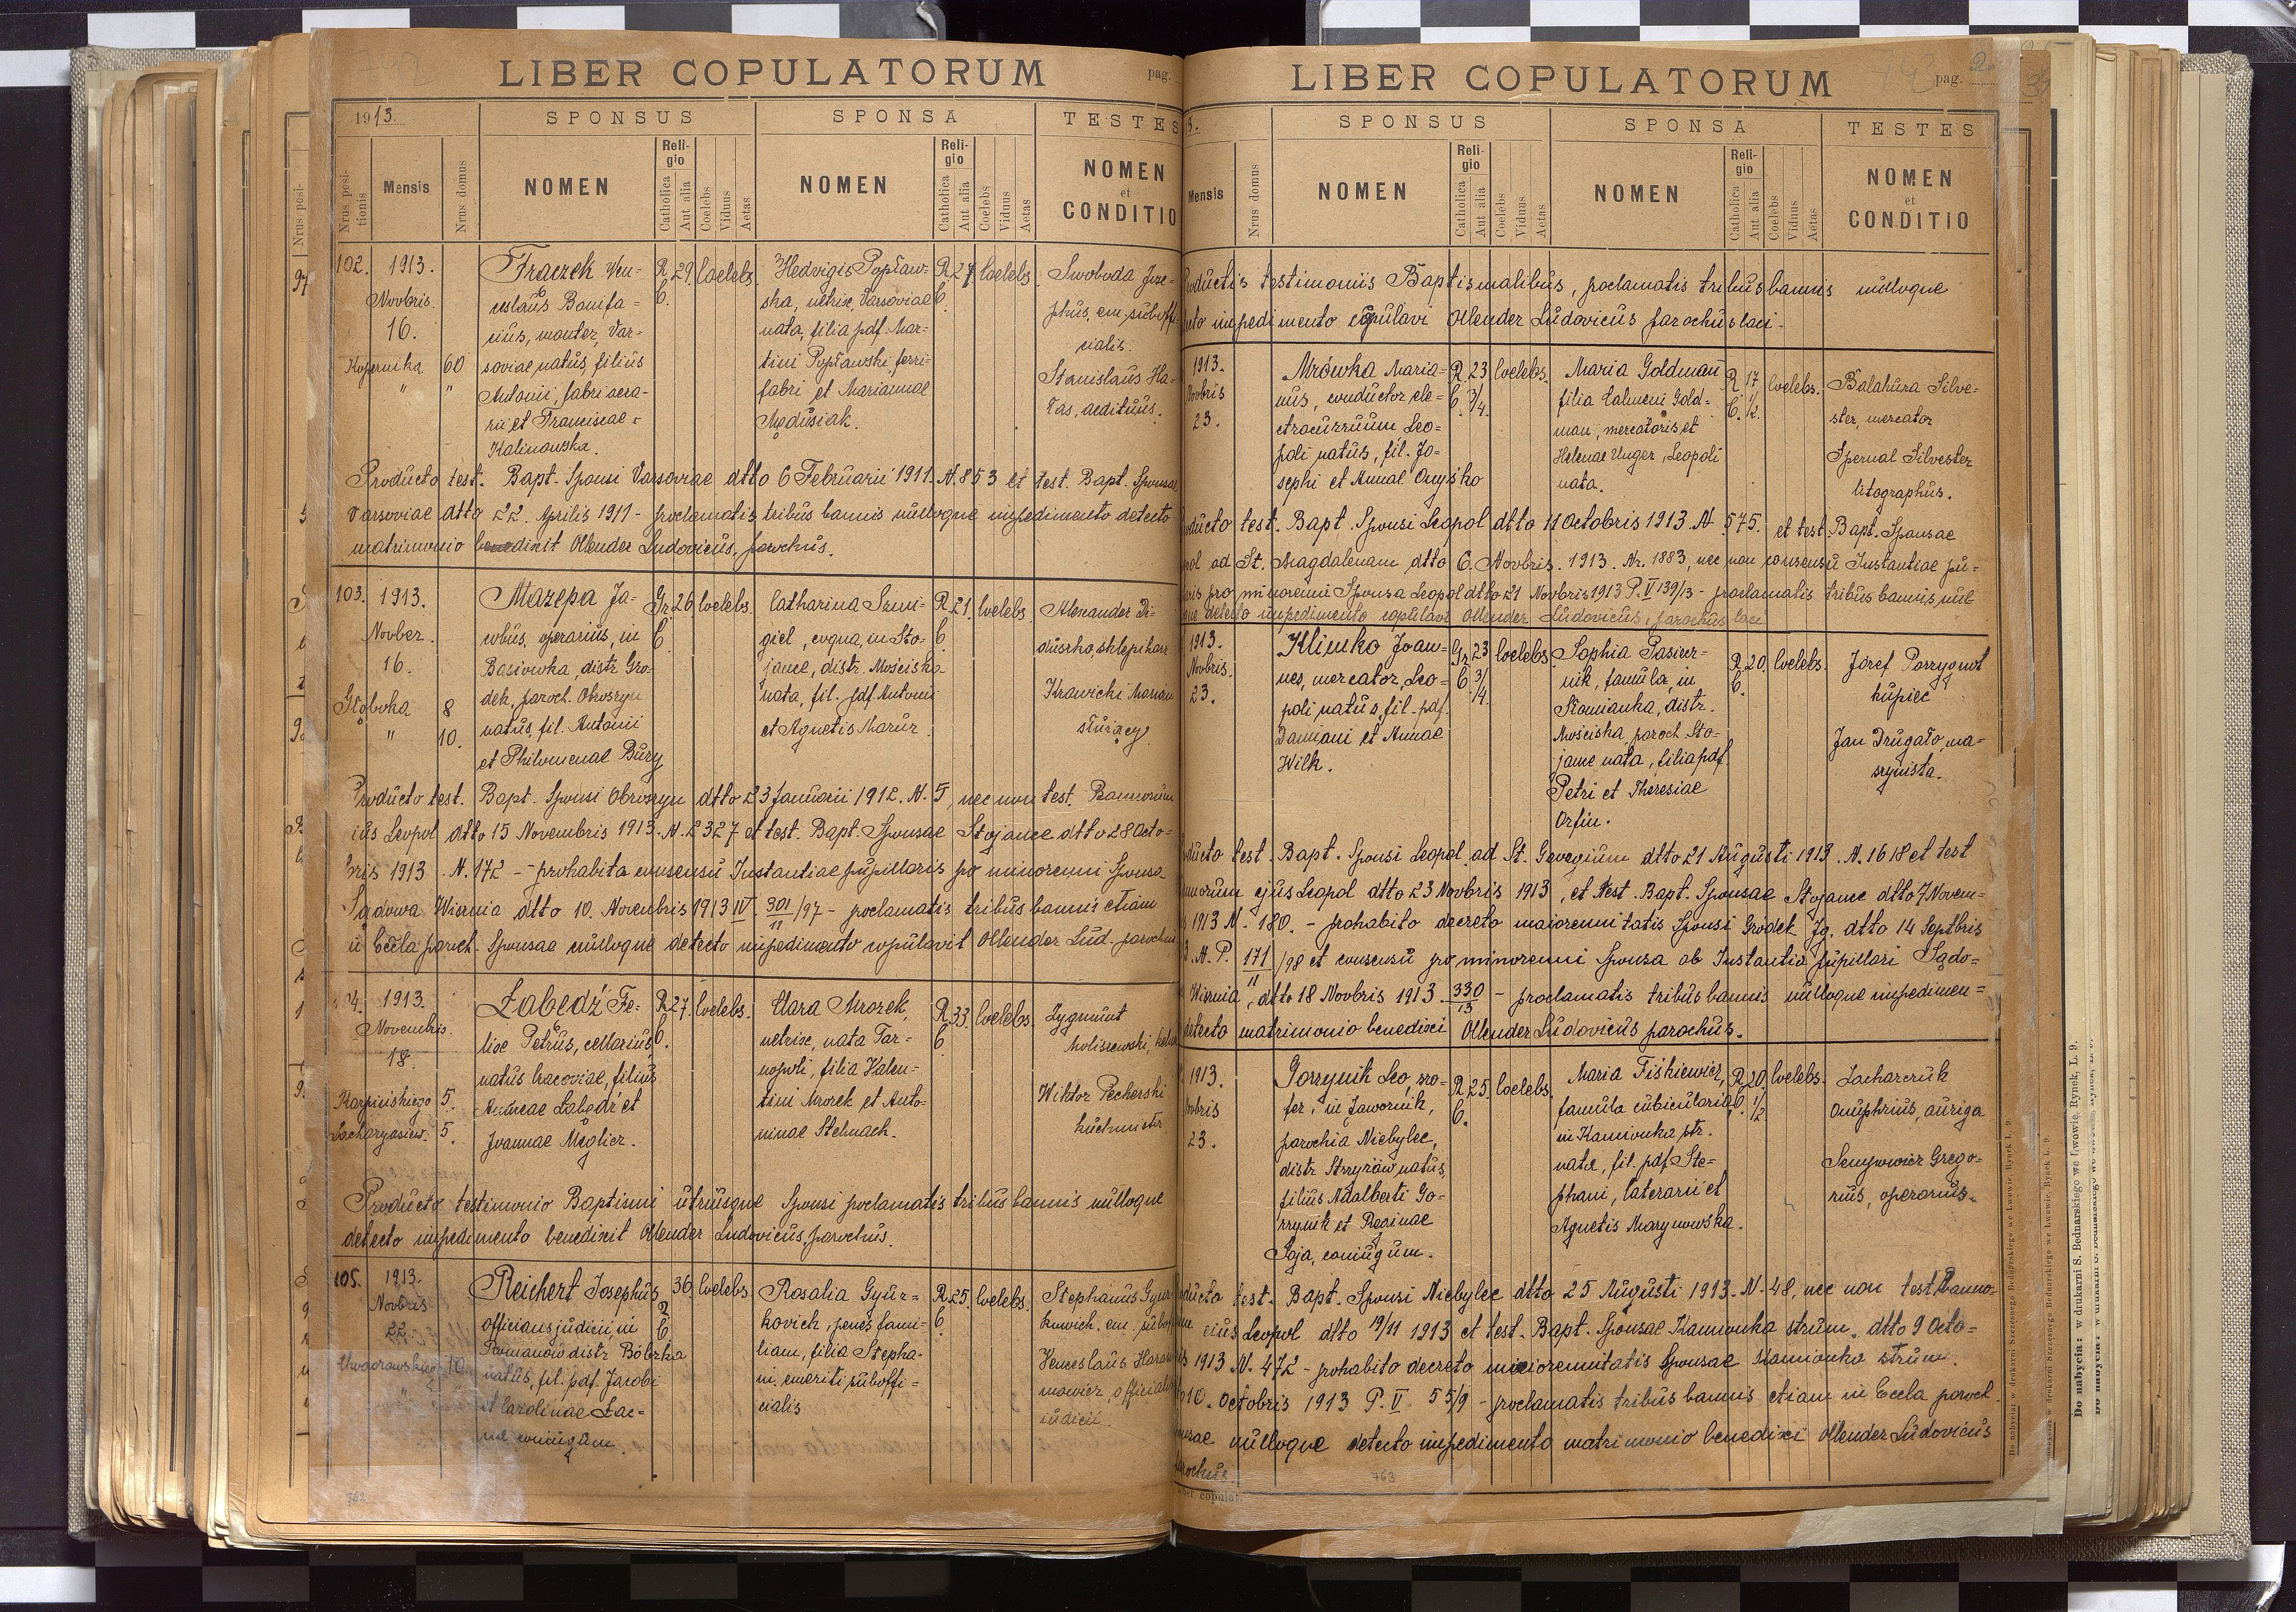 LIBER COPULATORUM
pag.
1913.
SPONSUS
SPONSA
TESTES
Nrus positionis
Mensis
Nrus domus
NOMEN
Religio
Catholica
Aut alia
Coelebs
Viduus
Aetas
NOMEN
Religio
Catholica
Aut alia
Coelebs
Viduus
Aetas
NOMEN
et
CONDITIO
102.
1913.
Novbris.
16.
Kopernika 60
" "
Frączek Wen-
ceslaus Bonifa-
cius, monter, Var-
soviae natus, filius
Antonii, fabri aera-
rii et Franciscae
Kalinowska.
R. C.
29.
Coelebs.
Hedvigis Popław-
ska, netrix, Varsoviae
nata, filia pdf. Mar-
tini Popławski, ferri-
fabri et Mariannae
Mędusiak.
R. C.
27.
Coelebs.
Swoboda Jose-
phus, em. suboffi-
cialis.
Stanislaus Ha-
łas, aedituus.
Producto test. Bapt. Sponsi Varsoviae dtto 6 Februarii 1911. N. 853 et test. Bapt. Sponsae
Varsoviae dtto 22. Aprilis 1911 - proclamatis tribus bannis nulloque impedimento detecto
matrimonio benedixit Ollender Ludovicus, parochus.
103.
1913.
Novber.
16.
8
" 10.
Mazepa Ja-
cobus, operarius, in
Basiowka, distr. Gro-
dek, paroch. Obroszyn
natus, fil. Antonii
et Philomenae Bury
Gr. C.
26
Coelebs.
Catharina Szmi-
giel, coqua, in Sto-
jance, distr. Mościska
nata, fil. pdf. Antonii
et Agnetis Mazur.
R. C.
21.
Coelebs.
Alexander Di-
duszko, sklepikarz
Krawicki Marian
służący
Producto test. Bapt. Sponsi Obroszyn dtto 23 Januarii 1912. N. 5, nec non test. Bannorum
ius Leopol dtto 15 Novembris 1913. N. 2327 et test. Bapt. Sponsae Stojance dtto 28 Octo-
bris 1913. N. 172 - prohabita consensu Instantiae pupillaris pro minorenni Sponsa
Sądowa Wisznia dtto 10. Novembris 1913 IV. 301/11 /97 - proclamatis tribus bannis etiam
in Eccla paroch. Sponsae nulloque detecto impedimento copulavit Ollender Lud. parochus
1913.
Novembris.
18.
Karpińskiego 5.
Zacharyasiew. 5.
Łabędź Fe-
lix Petrus, cellarius,
natus Cracoviae, filius
Andreae Łabędź et
Joannae Męglicz.
R. C.
27.
Coelebs.
Clara Mrozek,
netrix, nata Tar-
nopoli, filia Valen-
tini Mrozek et Anto-
ninae Stelmach.
R. C.
33.
Coelebs.
Zygmunt
Holiszewski,
Wiktor Pecherski
kuchmistrz
Producto testimonio Baptismi utriusque Sponsi proclamatis tribus bannis nulloque
detecto impedimento benedixit Ollender Ludovicus, parochus.
105.
1913.
Novbris
22.
10.
Reichert Josephus
officians judicii, in
Romanów distr. Bóbrka
natus, fil. pdf. Jacobi
et Carolinae Lac-
coniugum.
R. C.
36
Coelebs
Rosalia Gyur-
kovich, penes fami-
liam, filia Stepha-
ni, emeriti suboffi-
cialis
R. C.
25.
Coelebs.
Stephanus Gyur-
kowich, em. suboff
officialis
iudicii.
762
LIBER COPULATORUM
pag.
3.
SPONSUS
SPONSA
TESTES
Mensis
Nrus domus
NOMEN
Religio
Catholica
Aut alia
Coelebs
Viduus
Aetas
NOMEN
Religio
Catholica
Aut alia
Coelebs
Viduus
Aetas
NOMEN
et
CONDITIO
oductis testimoniis Baptismalibus, proclamatis tribus bannis nulloque
cto impedimento copulavi Ollender Ludovicus parochus loci.
1913.
Novbris
23.
Mrówka Maria-
nus, conductor ele-
ctrocurruum Leo-
poli natus, fil. Jo-
sephi et Annae Onyśko
R. C.
23 3/4.
Coelebs.
Maria Goldman
filia Calmeni Gold-
man, mercatoris et
Helenae Unger, Leopoli
nata.
R. C.
17 1/2.
Coelebs.
Balahura Silve-
ster, mercator
Spernal Silvester
litographus.
oducto test. Bapt. Sponsi Leopol dtto 11 Octobris 1913. N 575. et test. Bapt. Sponsae
pol ad St. Magdalenam dtto 6. Novbris. 1913. Nr. 1883, nec non consensu Instantiae pu-
aris pro minorenni Sponsa Leopol dtto 21 Novbris 1913 P. V 139/13 - proclamatis tribus bannis, nul
que detecto impedimento copulavi Ollender Ludovicus, parochus loci
1913.
Novbris.
23.
Klimko Joan-
nes, mercator, Leo-
poli natus, fil. pdf.
Damiani et Annae
Wilk.
Gr. C.
23 3/4.
Coelebs
Sophia Pasicz-
nik, famula, in
Słomianka, distr.
Mościska, paroch. Sto-
jance nata, filia pdf.
Petri et Theresiae
Orfin.
R. C.
20.
Coelebs.
Józef Porzygnot
kupiec
Jan Drugało, ma-
szynista.
oducto test. Bapt. Sponsi Leopol. ad St. Georgium dtto 21 Augusti 1913. N. 1618 et test
nnorum ejus Leopol dtto 23 Novbris 1913, et Test. Bapt. Sponsae Stojance dtto 7 Novem-
s 1913 N. 180. - prohabito decreto maiorennitatis Sponsi Gródek Jg. dtto 14 Septbris
3. N. P. 171/11 /98 et consensu pro minorenni Sponsa ab Instantia pupillari Sądo-
Wisznia, dtto 18 Novbris 1913. 330/13 - proclamatis tribus bannis nulloque impedimen-
detecto matrimonio benedixi Ollender Ludovicus parochus.
1913.
mbris
23.
Gorzynik Leo, szo-
fer, in Jawornik,
parochia Niebylec,
distr. Strzyżów natus,
filius Adalberti Go-
rzynik et Reginae
Soja, coniugum.
R. C.
25.
Coelebs.
Maria Fiśkiewicz,
famula cubicularia,
in Kamionka str.
nata, fil. pdf. Ste-
phani, laterarii et
Agnetis Marynowska.
R. C.
20 1/2
Coelebs.
Zacharczuk
Onuphrius, auriga
Sempowicz Grego-
rius, operarius.
oducto test. Bapt. Sponsi Niebylec dtto 25 Augusti 1913. N. 48, nec non test. Banno-
eius Leopol dtto 19/11 1913 et test. Bapt. Sponsae Kamionka strum. dtto 9 Octo-
is 1913 N. 472 - prohabito decreto maiorennitatis Sponsae Kamionka strum.
to 10. Octobris 1913 P. V. 55/9 - proclamatis tribus bannis etiam in Eccla paroch.
nsae nulloque detecto impedimento matrimonio benedixi Ollender Ludovicus
parochus.
763
Liber copulat.
Do nabycia: w drukarni S. Bednarskiego we Lwowie, Rynek, L. 9.